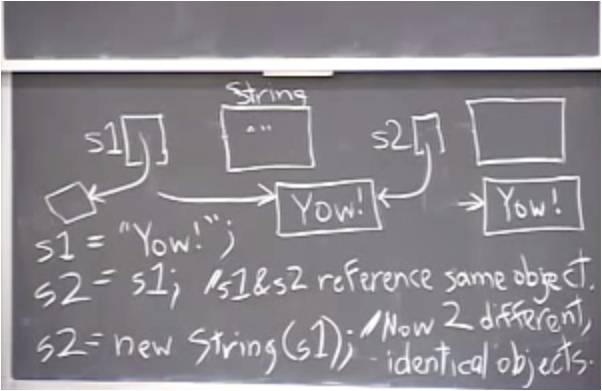 String
s1 "" s2
Yow! Yow!
s1 = "Yow!";
s2 = s1; //s1&s2 reference same object.
s2 = new String(s1); //Now 2 different,
identical objects.